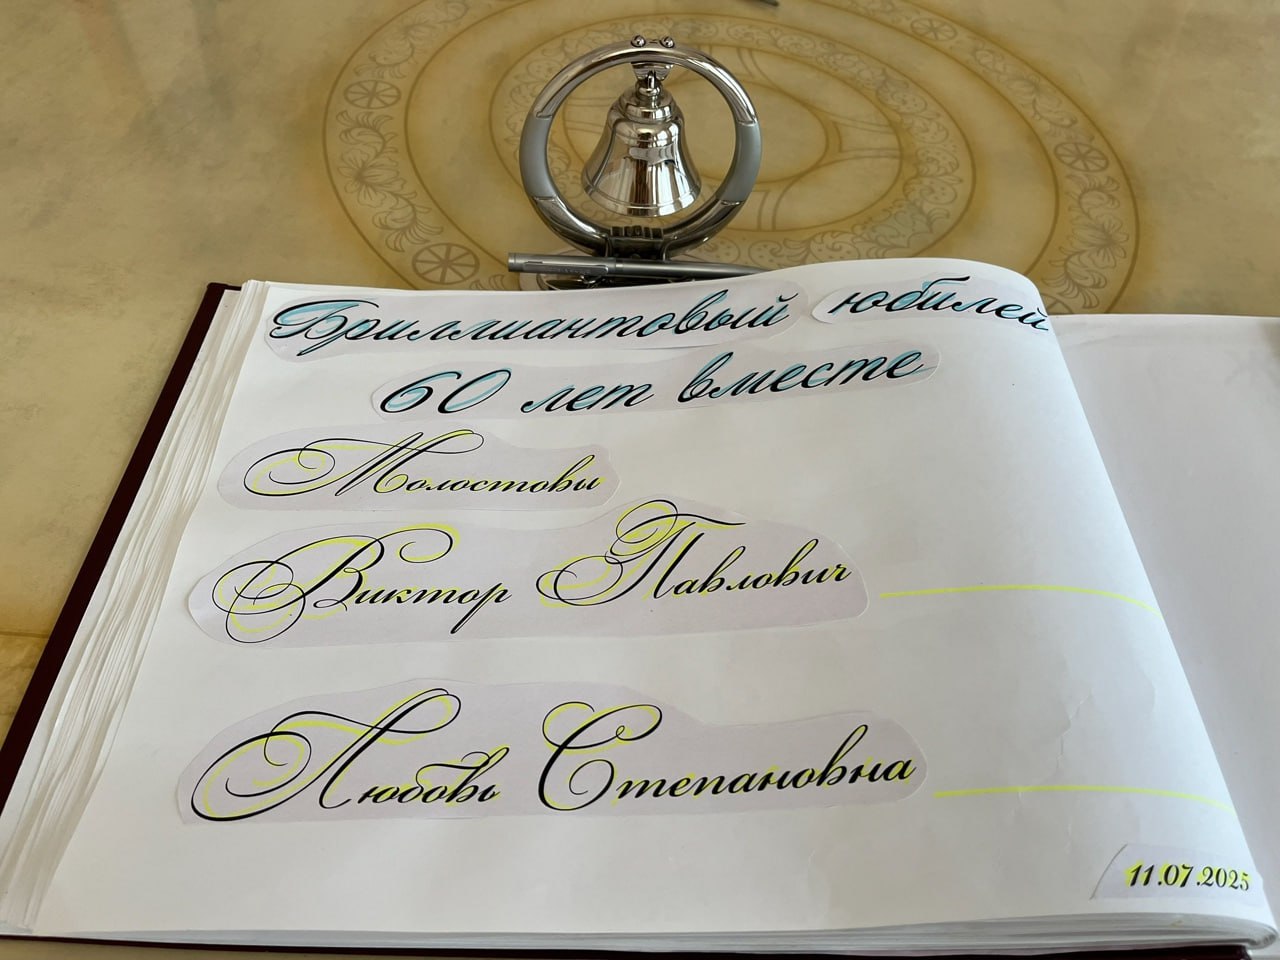 Бриллиантовый юбилей
60 лет вместе
Молостовы
Виктор Павлович
Любовь Степановна
11.07.2025